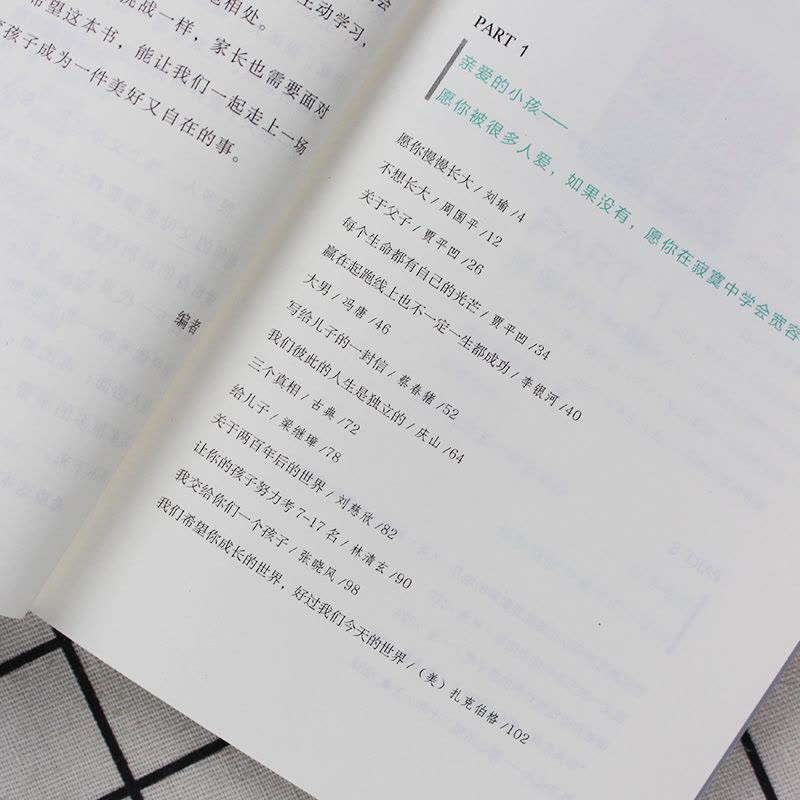 主动学习，
地相处。
挑战一样，家长也需要面对
希望这本书，能让我们一起走上一场
孩子成为一件美好又自在的事。
编者
PART 1
亲爱的小孩——
愿你被很多人爱，如果没有，愿你在寂寞中学会宽容
愿你慢慢长大 / 刘瑜 /4
不想长大 / 周国平 /12
关于父子 / 贾平凹 /26
每个生命都有自己的光芒 / 贾平凹 /34
赢在起跑线上也不一定一生都成功 / 李银河 /40
大男 / 冯唐 /46
写给儿子的一封信 / 蔡春猪 /52
我们彼此的人生是独立的 / 庆山 /64
三个真相 / 古典 /72
给儿子 / 梁继璋 /78
关于两百年后的世界 / 刘慈欣 /82
让你的孩子努力考7-17名 / 林清玄 /90
我交给你们一个孩子 / 张晓风 /98
我们希望你成长的世界，好过我们今天的世界 / （美）扎克伯格 /102